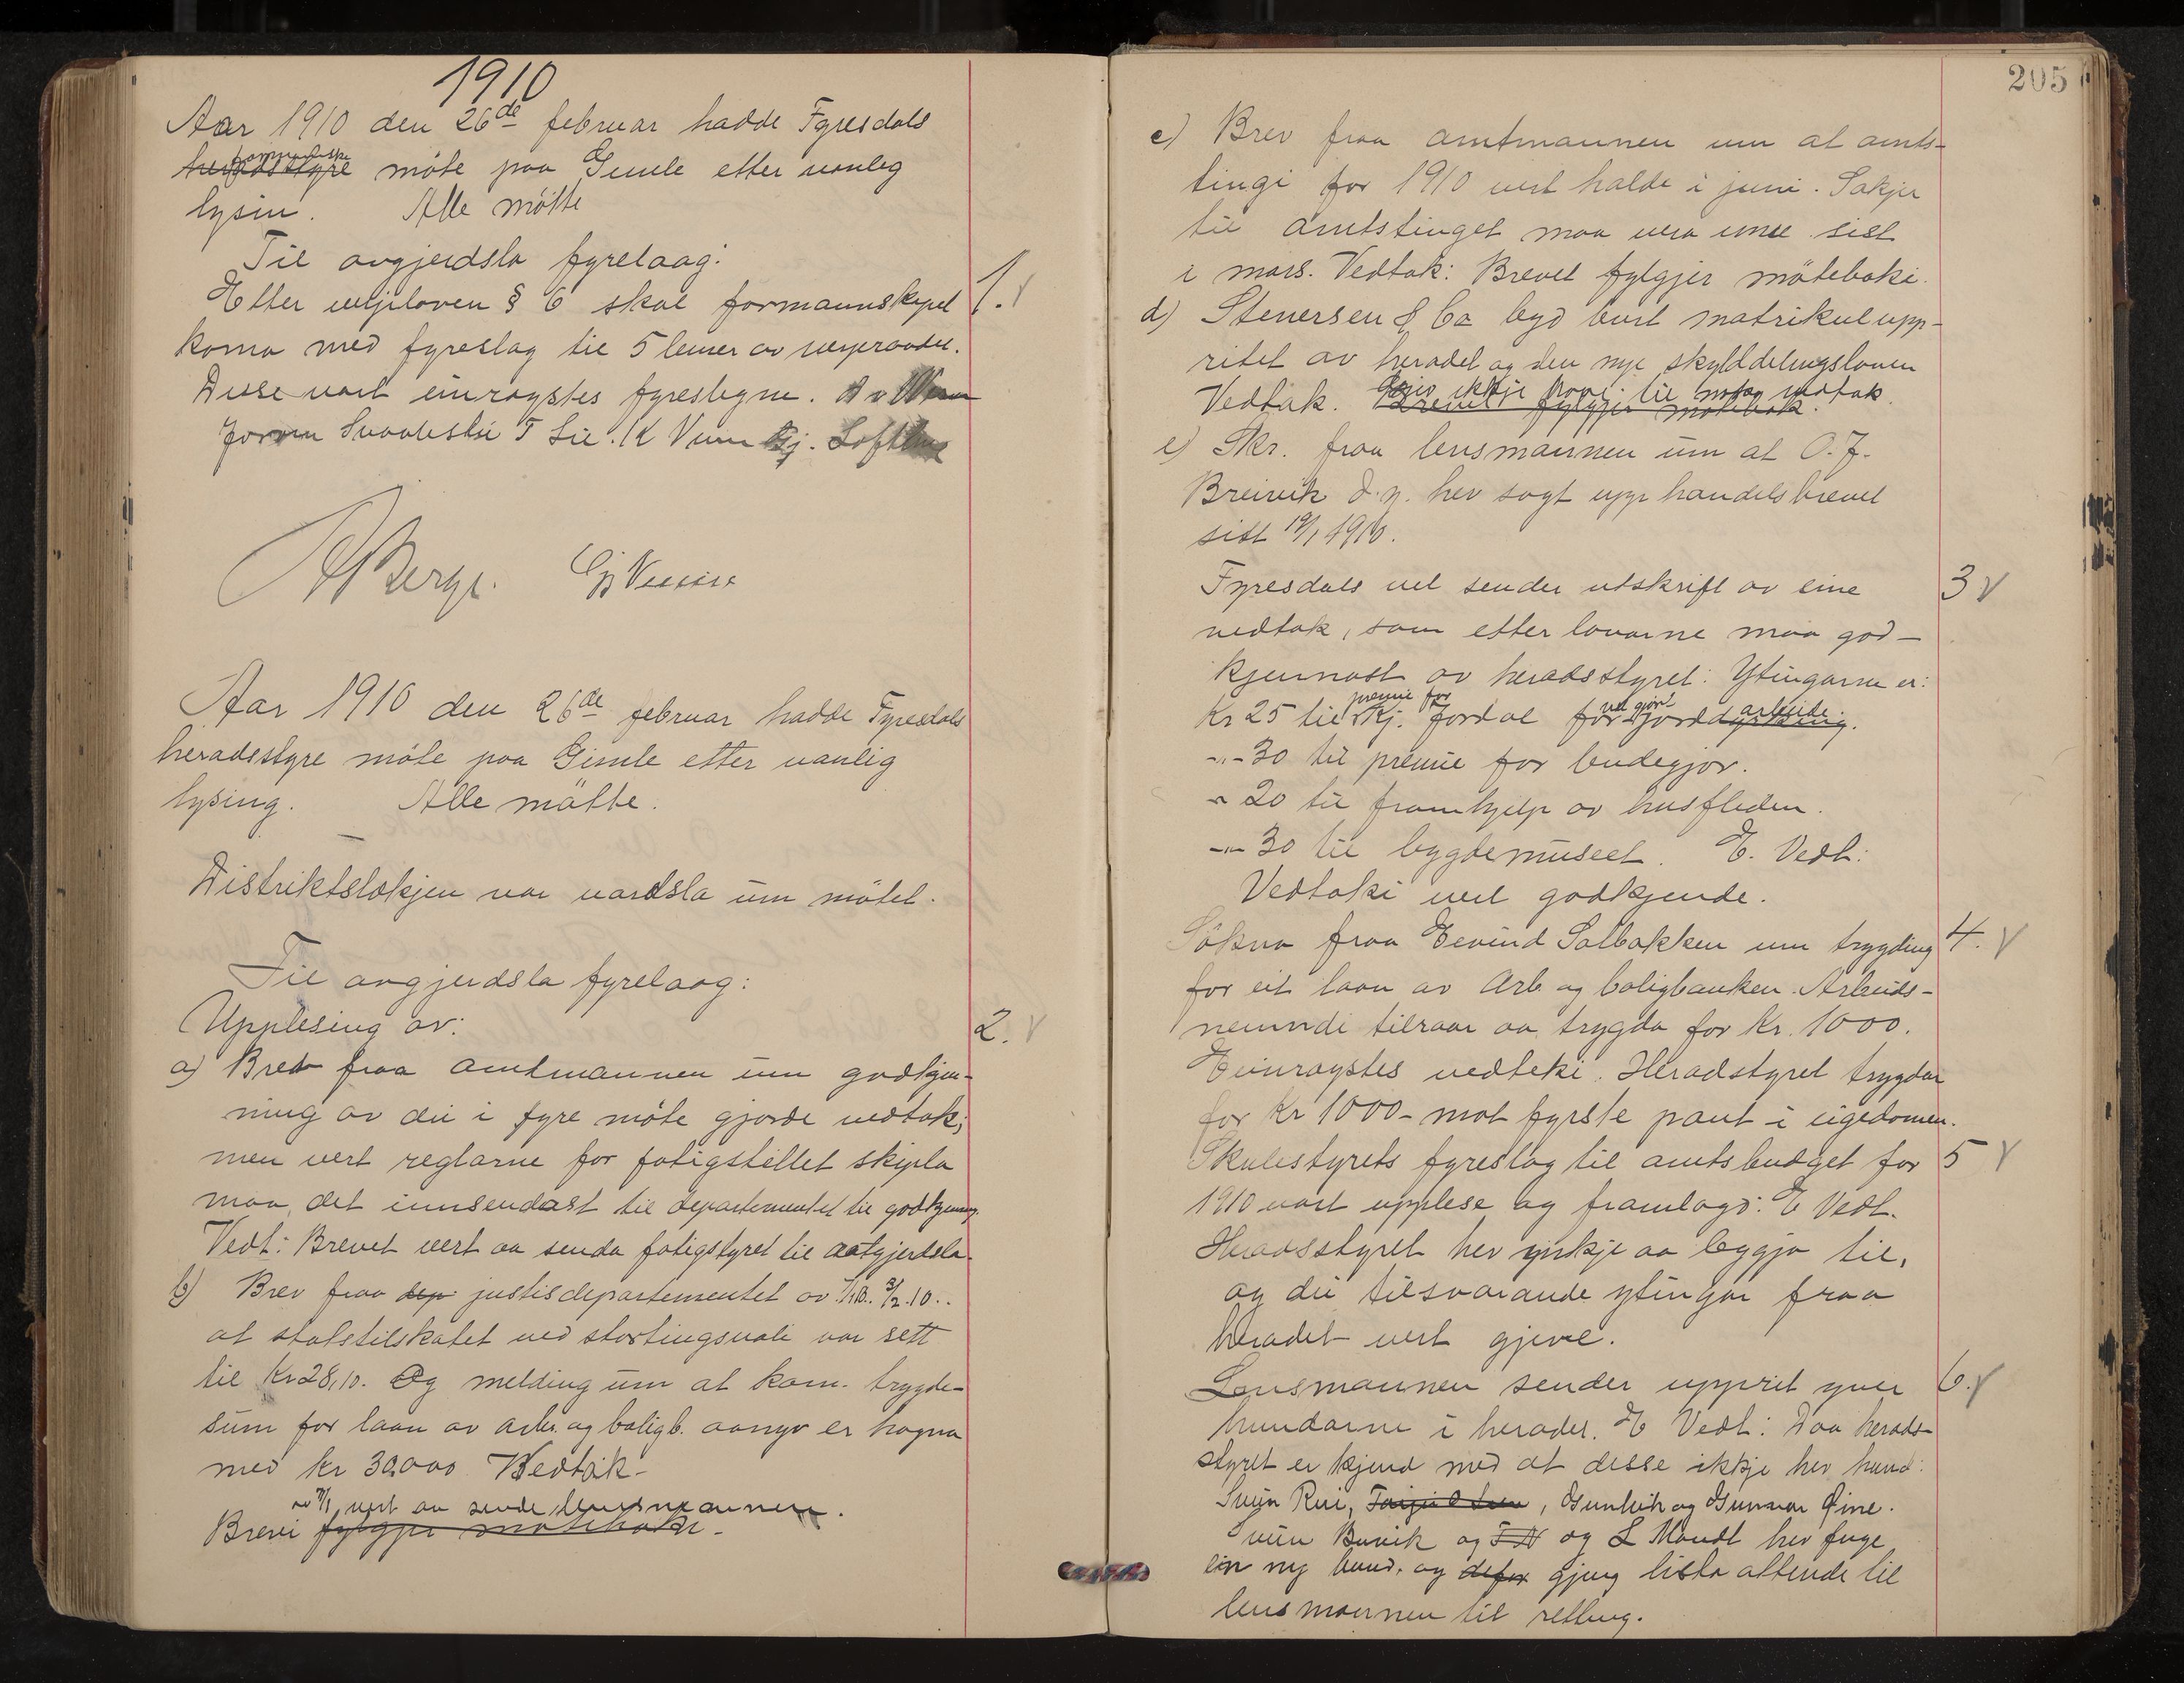 1910
Aar 1910 den 26de februar hadde Fyresdals
formannskap
heradsstyre møte paa Gimle etter vanleg
lysin. Alle møtte
Til avgjerdsla fyrelaag:
Etter vegloven § 6 skal formannskapet 1.
koma med fyreslag til 5 lemer av
Disse vart einrøystes fyreslegne.
T Lie. K Veum Gj.
Berge. Gj Veum
Aar 1910 den 26de februar hadde Fyresdals
heradsstyre møte paa Gimle etter vanlig
lysing. Alle møtte.
Distriktslækjen var vardsla um møtet.
Til avgjerdsla fyrelaag:
Upplesing av: 2.
a) Brev fraa amtmannen um godkjen-
ning av dei i fyre møte gjorde vedtak;
men vert reglarne for fatigstellet skipla
maa det innsendast til departementet til godkjenning.
Vedt: Brevet vert aa senda fatigstyret til aatgjerdsla.
b) Brev fraa dep justisdepartementet av 3/2.10..
at statstilskotet ved stortingsvali var sett
til Kr 28,10. Og melding um at kom. trygde-
sum for laan av arb. og boligb. aongo er hogna
med kr 30,000 Vedtak-
vert aa sende lensmannen.
Brevi fylgjer møteboki.
205
c) Brev fraa amtmannen um at amts-
tingi for 1910 vert halde i juni. Sakjer
til amtstinget maa vera inne sist
i mars. Vedtak: Brevet fylgjer møteboki.
d) Stenersen & Co byd burt matrikulupp-
ritet av heradet og den nye skylddelingsloven
ikkje til vedtak
Vedtak. Brevet fylgjer møtebok.
e) Skr. fraa lensmannen um at O. J.
Breivik d. y. hev sagt upp handelsbrevet
sitt 19/1 1910.
Fyresdals vel sender utskrift av eine 3
vedtak, som etter lovarne maa god-
kjennast av heradsstyret: Ytingarne er:
premie for vel gjort arbeide
Kr 25 til skj. fordal for jorddyrkning.
-"- 30 til premie for budegjor.
" 20 til framhjelp av husfliden.
-"- 30 til bygdemuseet. E. Vedt:
Vedtaki vert godkjende.
Søkna fraa Eivind Solbakken um trygding 4.
for eit laan av Arb. og boligbanken. Arbeids-
nemndi tilraar aa trygda for Kr. 1000.
Einrøystes vedteki. Heradstyret trygdar
for Kr 1000- mot fyrste pant i eigedomen.
Skulestyrets fyreslag til amtsbudget for 5
1910 vart upplese og framlagd: E Vedt.
Heradsstyret hev ynkje aa leggja til,
og dei tilsvarande ytingar fraa
heradet vert gjeve.
Lensmannen sender upprit yver 6.
hundarne i herader. E Vedt: Daa herads-
styret er kjend med at desse ikkje hev hund:
Svein Rui, , Gunleik og Gunnar Øine.
og og L Moudt hev fenge
ein ny hund, og derfor gjeng lista attende til
lensmannen til retting.